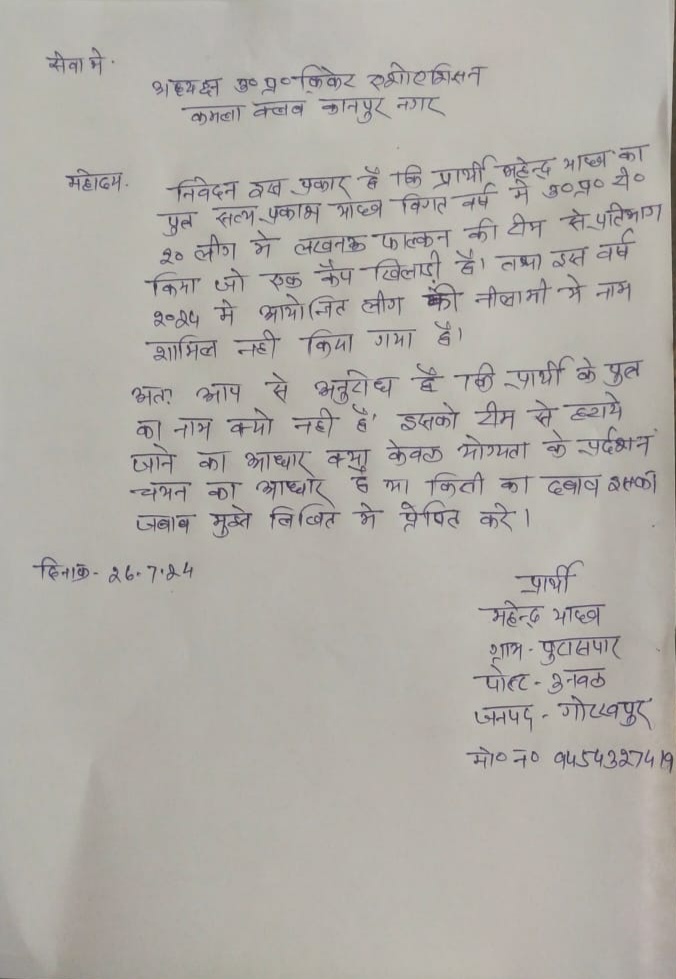 सेवा मे.
अध्यक्ष उ०प्र० क्रिकेट एशोएसिसन
कमला क्लब कानपुर नगर
महोदय.
निवेदन इस प्रकार है कि प्रार्थी महेन्द्र यादव का
पुत्र सत्य प्रकाश यादव विगत वर्ष मे उ०प्र० टी०
२० लीग मे लखनऊ फाल्कन की टीम से प्रतिभाग
किया जो एक कैप खिलाडी है। तथा इस वर्ष
२०२४ मे आयोजित लीग की नीलामी मे नाम
शामिल नही किया गया है।
अतः आप से अनुरोध है कि प्रार्थी के पुत्र
का नाम क्यो नही है, इसको टीम से हटाये
जाने का आधार क्या केवल योग्यता के प्रर्दशन
चयन का आधार है या किसी का दबाव इसका
जबाब मुझे लिखित मे प्रेषित करे।
दिनाक- २६.7.२४
प्रार्थी
महेन्द्र यादव
ग्राम- पुरासपार
पोस्ट- उनवल
जनपद- गोरखपुर
मो० न० 9454327419